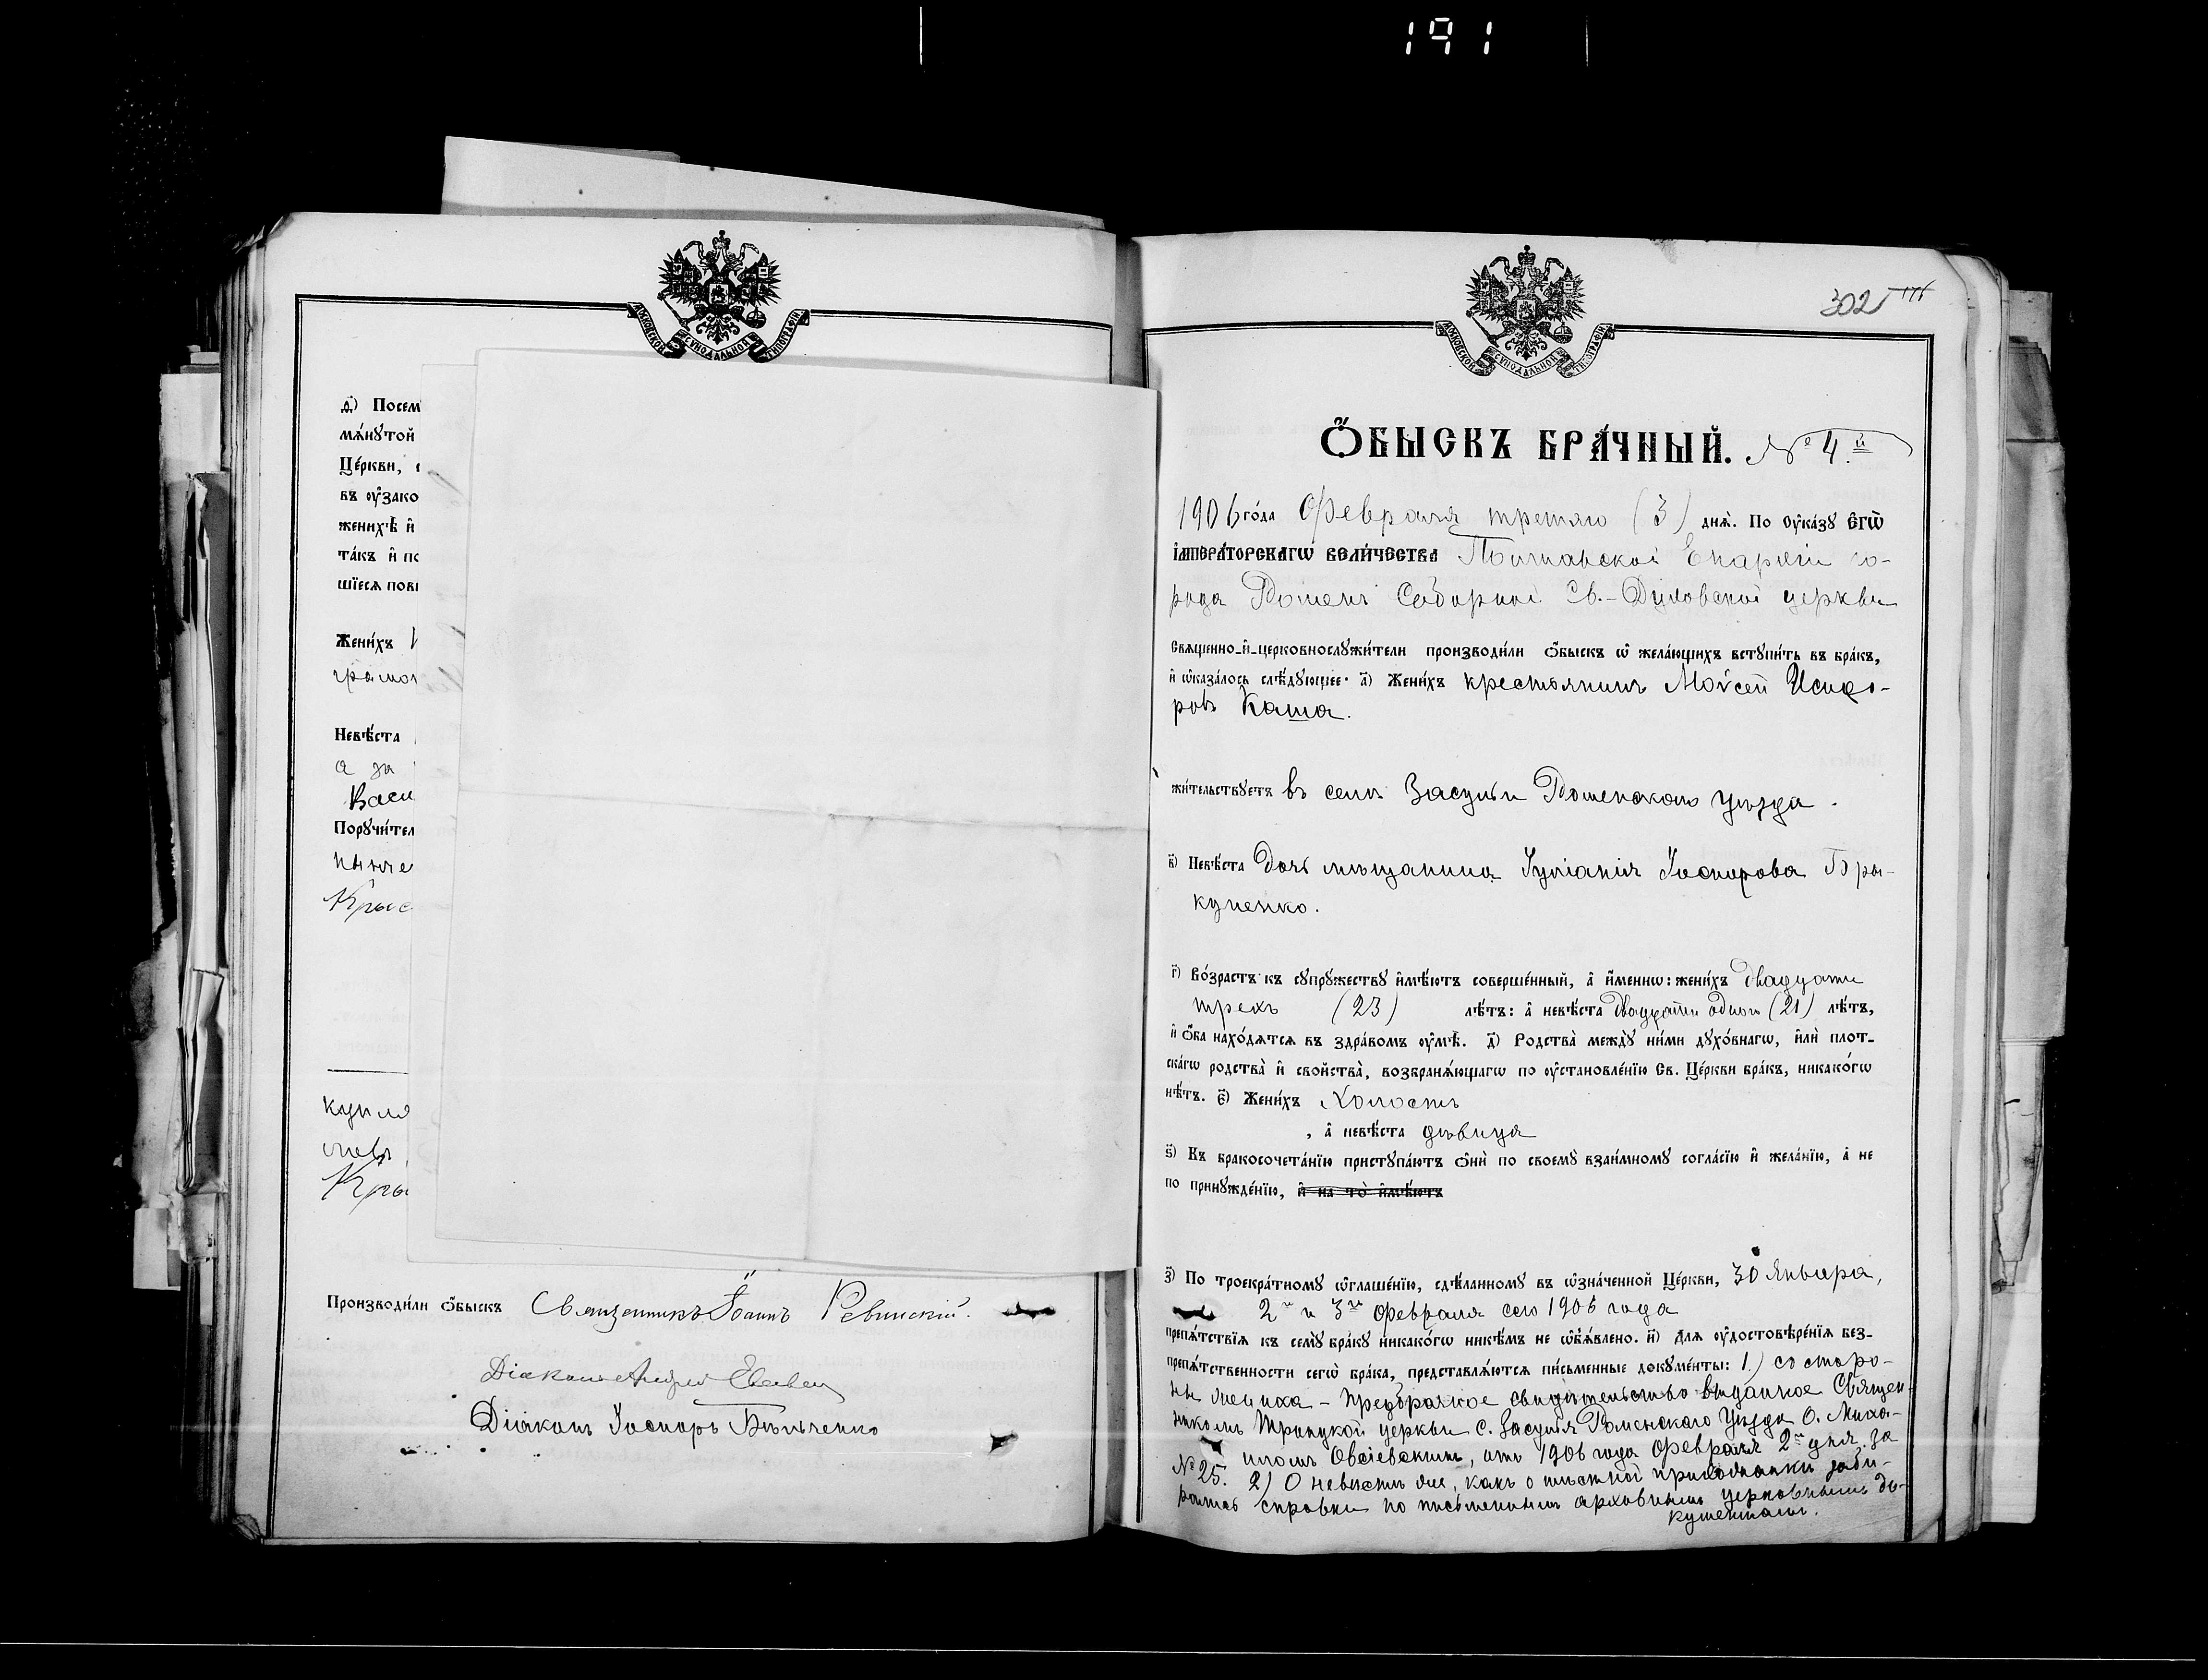 191
МОСКОВСКОЙ СУНОДАЛЬНОЙ ТИПОГРАФІИ
д҃) Посем
мѧ́нꙋтой
Це́ркви,
въ оу҆зако
женихѣ̀ и҆
та́къ и҆ по
шїесѧ пов
Жени́хъ
грамот
Невѣ́ста
а за
Васи
Порꙋчи́тел
Крыс
купло
Кры
Производи́ли ѻ҆́быскъ Священникъ Іоаннъ Ревинскій.
Діаконъ Андрей
Діаконъ Іосифъ
МОСКОВСКОЙ СУНОДАЛЬНОЙ ТИПОГРАФІИ
302 176
Ѻ҆́БЫСКЪ БРА́ЧНЫЙ. № 4.й
1906 го́да Февраля третяго (3) днѧ̀. По оу҆ка́зꙋ є҆гѡ̀
і҆мпера́торскагѡ вели́чества Полтавской Епархіи го-
рода Роменъ Соборной Св.-Духовской церкви
Свѧщенно-и҆-церковнослꙋжи́тели производи́ли ѻ҆́быскъ ѡ҆ жела́ющихъ встꙋпи́ть въ бра́къ,
и҆ ѡ҆каза́лось слѣ́дꙋющее: а҃) Жени́хъ крестьянинъ Мойсей Исидо-
ровъ Каша.
жи́тельствꙋетъ въ селѣ Засульи Роменскаго уѣзда.
в҃) Невѣ́ста Дочь мѣщанина Іуліанія Іосифова
г҃) Во́зрастъ къ сꙋпрꙋ́жествꙋ и҆мѣ́ютъ соверше́нный, а҆ и҆́меннѡ: жени́хъ двадцати
трехъ (23) лѣ́тъ: а҆ невѣ́ста двадцати одного (21) лѣ́тъ,
и҆ ѻ҆́ба нахо́дѧтсѧ въ здра́вомъ оу҆мѣ̀. д҃) Родства̀ междꙋ̀ ни́ми дꙋхо́внагѡ, и҆лѝ плот-
ска́гѡ родства̀ и҆ сво́йства̀, возбранѧ́ющагѡ по оу҆становле́нїю Св. Це́ркви бра́къ, никако́гѡ
нѣ́тъ. є҃) Жени́хъ Холостъ
, а҆ невѣ́ста дѣвица
ѕ҃) Къ бракосочета́нїю пристꙋпа́ютъ ѻ҆нѝ по своемꙋ̀ взаи́мномꙋ согла́сїю и҆ жела́нїю, а҆ не
по принꙋжде́нїю, и҆ на то̀ и҆мѣ́ютъ
з҃) По троекра́тномꙋ ѡ҆глаше́нїю, сдѣ́ланномꙋ въ ѡ҆зна́ченной Це́ркви, 30 Января,
2го и 3го Февраля сего 1906 года
препѧ́тствїѧ къ семꙋ̀ бра́кꙋ никако́гѡ никѣ́мъ не ѡ҆б̾ѧ́влено. и҃) Длѧ оу҆достовѣре́нїѧ без-
препѧ́тственности сегѡ̀ бра́ка, представлѧ́ютсѧ пи́сьменные докꙋме́нты: 1.) со сторо-
ны жениха – предбрачное свидѣтельство выданное Священ-
никомъ Троицкой церкви с. Засулья Роменскаго уѣзда О. Миха-
иломъ Овсіевскимъ, отъ 1906 года Февраля 2го дня за
№ 25. 2) О невѣстѣ же, какъ о мѣстной прихожанкѣ
справки по письменнымъ церковнымъ до-
кументамъ.